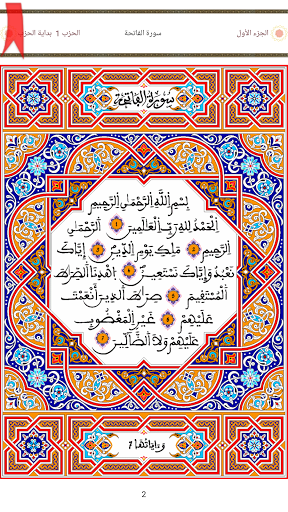 الجزء الأول
سورة الفاتحة
الحزب 1 بداية الحزب
سورة الفاتحة
بِسْمِ اللَّهِ الرَّحْمَٰنِ الرَّحِيمِ
الْحَمْدُ لِلَّهِ رَبِّ الْعَالَمِينَ 1 الرَّحْمَٰنِ
الرَّحِيمِ 2 مَلِكِ يَوْمِ الدِّينِ 3 إِيَّاكَ
نَعْبُدُ وَإِيَّاكَ نَسْتَعِينُ 4 اهْدِنَا الصِّرَاطَ
الْمُسْتَقِيمَ 5 صِرَاطَ الَّذِينَ أَنْعَمْتَ
عَلَيْهِمْ 6 غَيْرِ الْمَغْضُوبِ
عَلَيْهِمْ وَلَا الضَّالِّينَ 7
وءاياتها 7
2